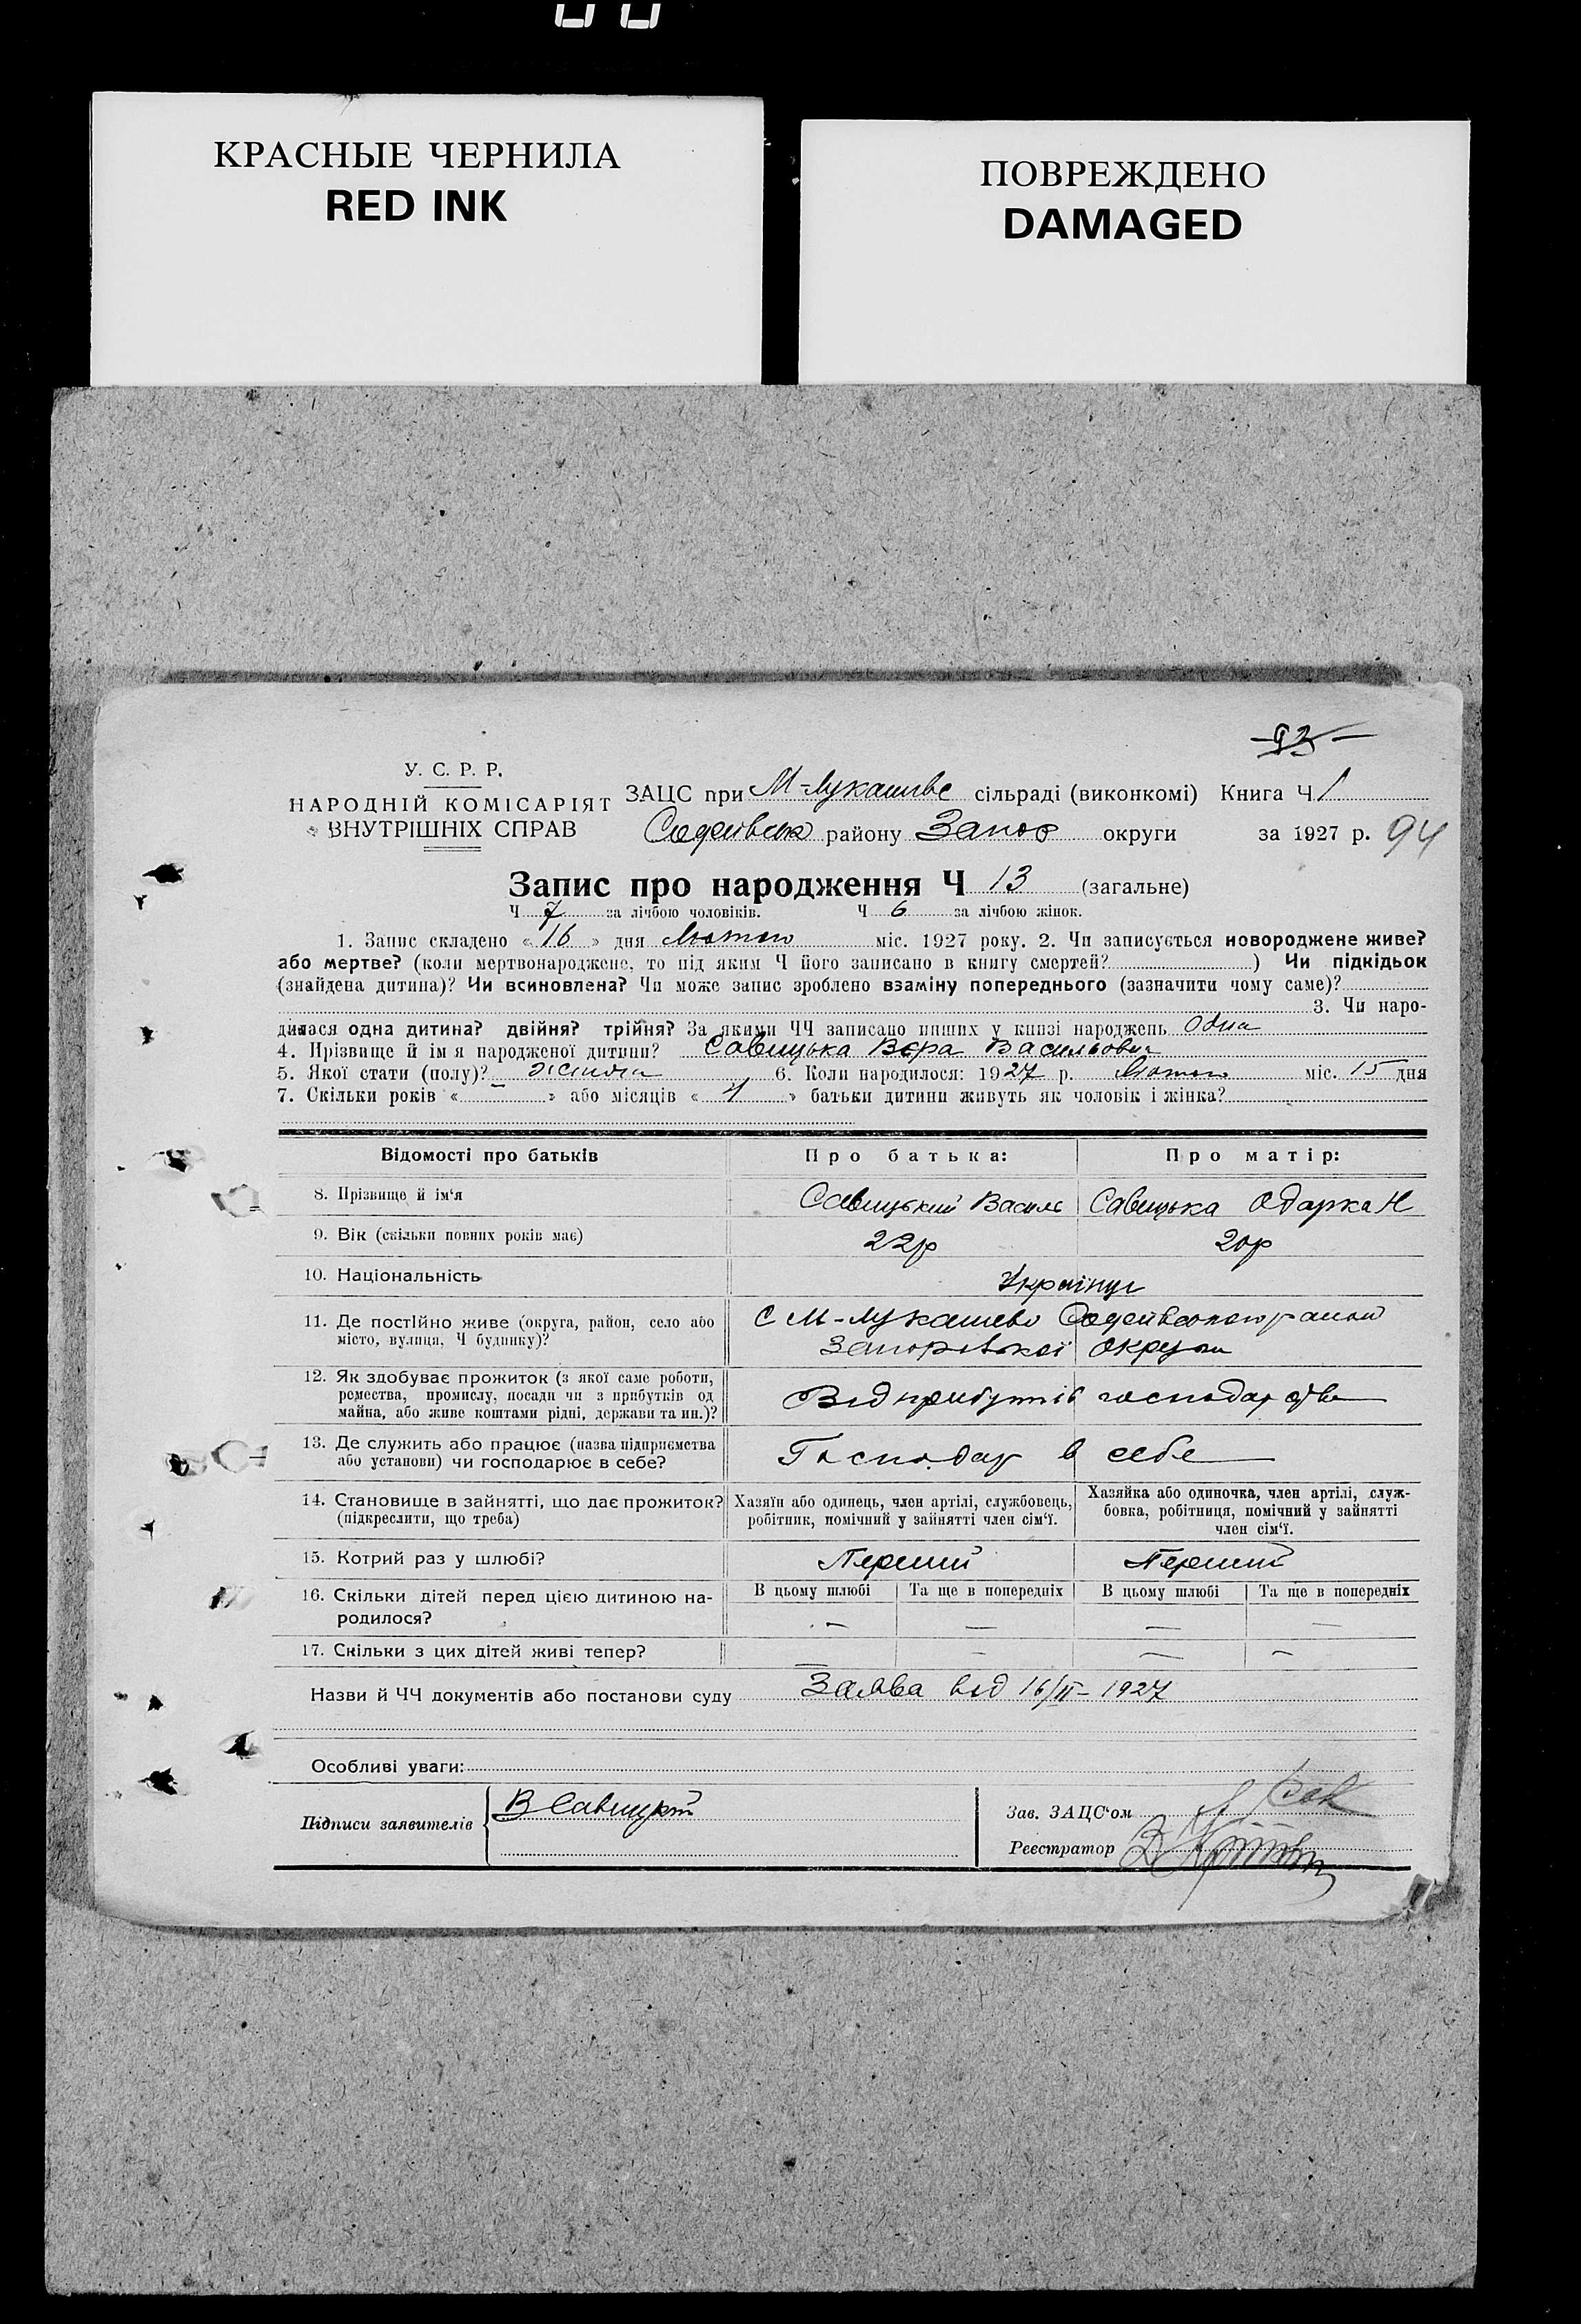 КРАСНЫЕ ЧЕРНИЛА
RED INK
ПОВРЕЖДЕНО
DAMAGED
93
У. С. Р. Р.
НАРОДНІЙ КОМІСАРІЯТ
ВНУТРІШНІХ СПРАВ
ЗАЦС при М-Лукашеве сільраді (виконкомі) Книга Ч 1
району Запор округи за 1927 р. 94
Запис про народження Ч 13 (загальне)
Ч 7 за лічбою чоловіків. Ч 6 за лічбою жінок.
1. Запис складено « 16 » дня Лютого міс. 1927 року. 2. Чи записується новороджене живе?
або мертве? (коли мертвонароджене, то під яким Ч його записано в книгу смертей? ) Чи підкідьок
(знайдена дитина)? Чи всиновлена? Чи може запис зроблено взаміну попереднього (зазначити чому саме)?
3. Чи наро-
дилася одна дитина? двійня? трійня? За якими ЧЧ записано инших у книзі народжень Одна
4. Прізвище й імя народженої дитини? Савицька Вєра Васильовна
5. Якої стати (полу)? 6. Коли народилося: 1927 р. Лютого міс. 15 дня
7. Скільки років « – » або місяців « » батьки дитини живуть як чоловік і жінка?
Відомості про батьків Про батька: Про матір:
8. Прізвище й ім'я Савицький Василь Савицька Одарка Н
9. Вік (скільки повних років має) 22р 20р
10. Національність Українці
11. Де постійно живе (округа, район, село або С М-Лукашево
місто, вулиця, Ч будинку)? Запорізької Округи
12. Як здобуває прожиток (з якої саме роботи,
ремества, промислу, посади чи з прибутків од Від прибутків господарства
майна, або живе коштами рідні, держави та ин.)?
13. Де служить або працює (назва підприємства Господар в себе
або установи) чи господарює в себе?
14. Становище в зайнятті, що дає прожиток? Хазяїн або одинець, член артілі, службовець, Хазяйка або одиночка, член артілі, служ-
(підкреслити, що треба) робітник, помічний у зайнятті член сім'ї. бовка, робітниця, помічний у зайнятті
член сім'ї.
15. Котрий раз у шлюбі? Перший Перший
16. Скільки дітей перед цією дитиною на- В цьому шлюбі Та ще в попередніх В цьому шлюбі Та ще в попередніх
родилося? — — — —
17. Скільки з цих дітей живі тепер? — — — —
Назви й ЧЧ документів або постанови суду Заява від 16/II – 1927
Особливі уваги:
Підписи заявителів В Савицкий
Зав. ЗАЦС'ом
Реєстратор